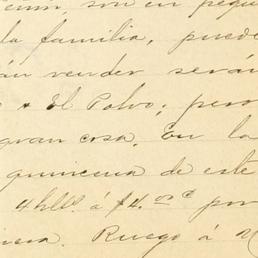 son en pequ
la familia, puede
án vender será
El Polvo; pero
gran cosa. En la
quincena de este
4 blls. á $4.00 c por
Ruego á